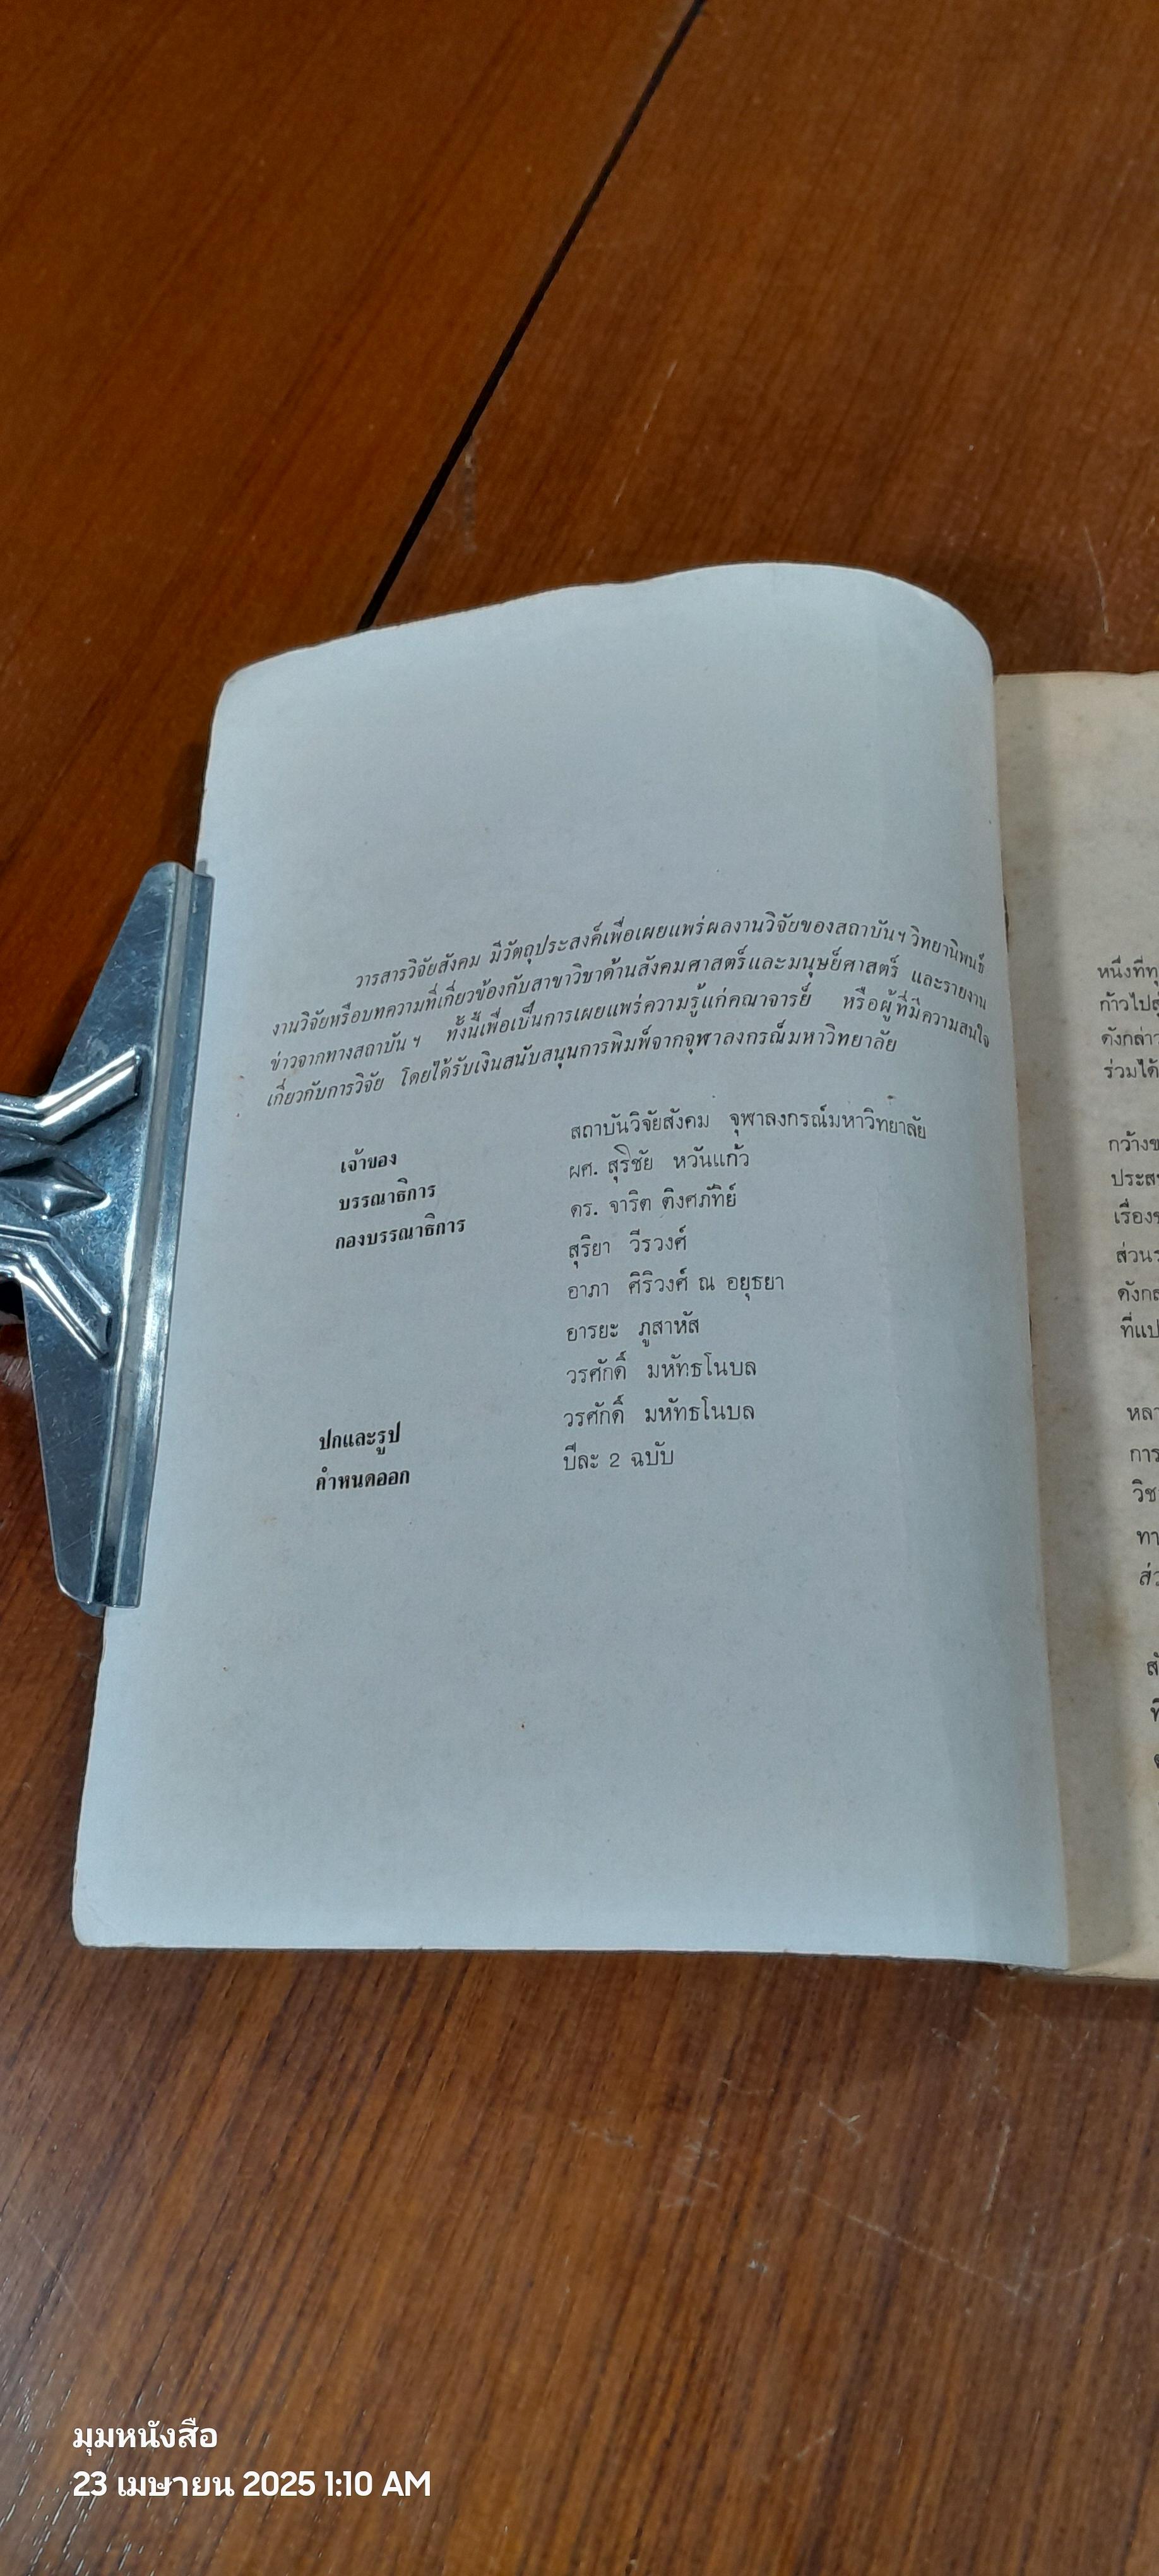 วารสารวิจัยสังคม มีวัตถุประสงค์เพื่อเผยแพร่ผลงานวิจัยของสถาบันฯ วิทยานิพนธ์
งานวิจัยหรือบทความที่เกี่ยวข้องกับสาขาวิชาด้านสังคมศาสตร์และมนุษย์ศาสตร์ และรายงาน
ข่าวจากทางสถาบันฯ ทั้งนี้เพื่อเป็นการเผยแพร่ความรู้แก่คณาจารย์ หรือผู้ที่มีความสนใจ
เกี่ยวกับการวิจัย โดยได้รับเงินสนับสนุนการพิมพ์จากจุฬาลงกรณ์มหาวิทยาลัย
เจ้าของ สถาบันวิจัยสังคม จุฬาลงกรณ์มหาวิทยาลัย
บรรณาธิการ ผศ. สุริชัย หวันแก้ว
กองบรรณาธิการ ดร. จาริต ติงศภัทิย์
สุริยา วีรวงศ์
อาภา ศิริวงศ์ ณ อยุธยา
อารยะ ภูสาหัส
วรศักดิ์ มหัทธโนบล
ปกและรูป วรศักดิ์ มหัทธโนบล
กำหนดออก ปีละ 2 ฉบับ
ก้าวไปสู่
ดังกล่าว
ร่วมได้
เรื่อง
การ
มุมหนังสือ
23 เมษายน 2025 1:10 AM